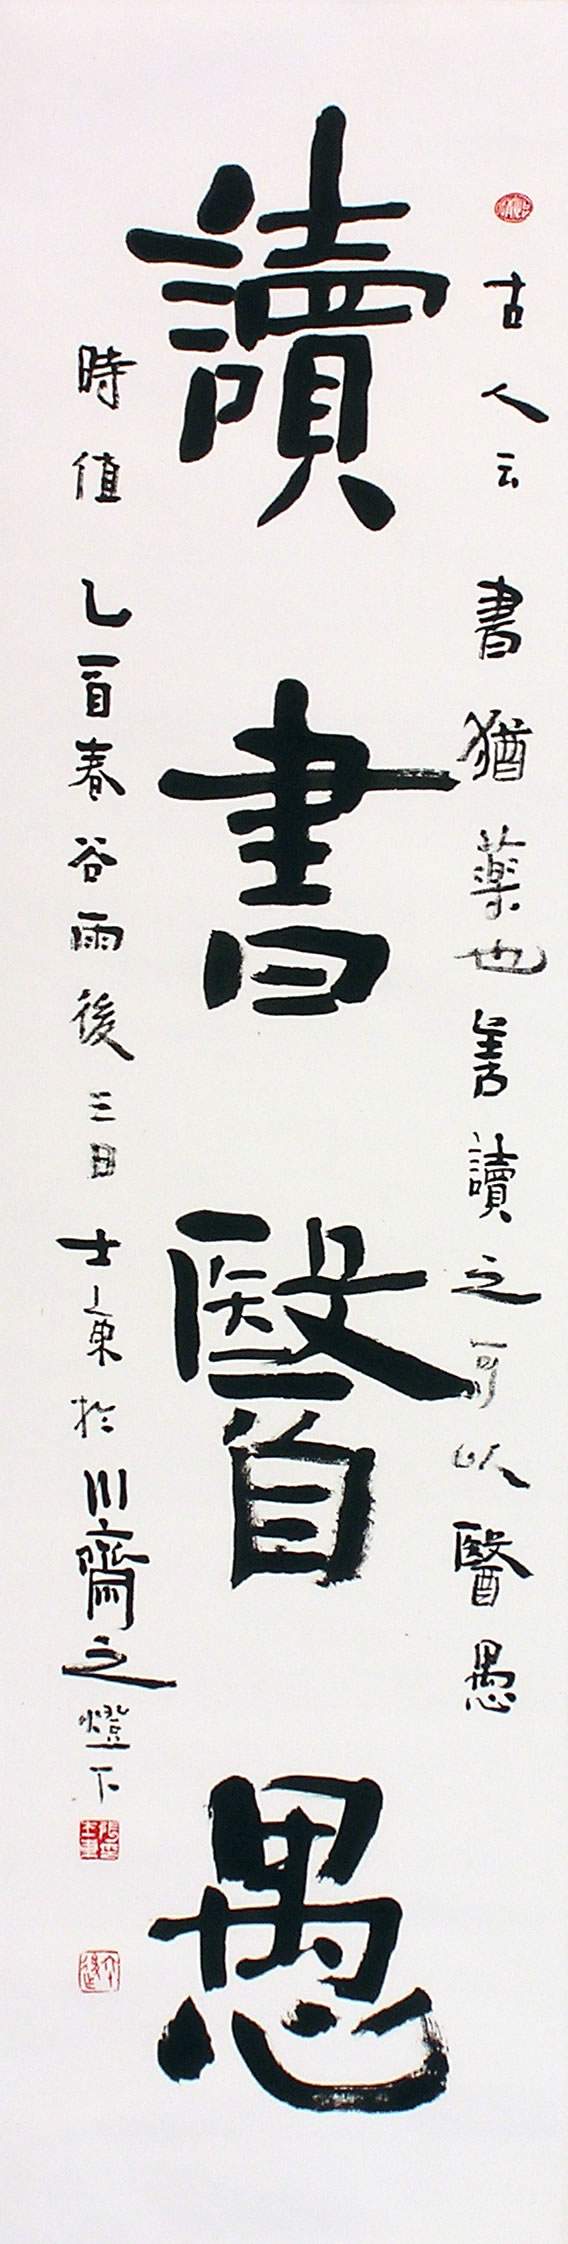 古人云書猶藥也善讀之可以醫愚
讀書醫愚
時值乙酉春谷雨後三日士東於川齋之燈下